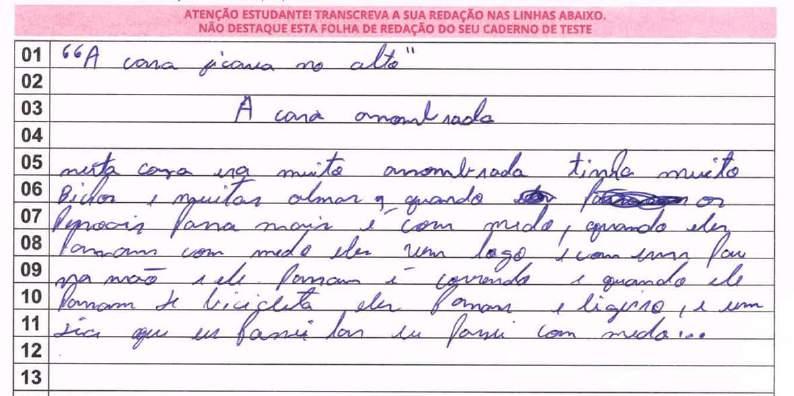 ATENÇÃO ESTUDANTE! TRANSCREVA A SUA REDAÇÃO NAS LINHAS ABAIXO.
NÃO DESTAQUE ESTA FOLHA DE REDAÇÃO DO SEU CADERNO DE TESTE
01 "A casa ficava no alto"
02
03 A casa assombrada
04
05 nesta casa era muito assombrada tinha muito
06 Bichos e muitas almas quando os
07 pessoais passa mais é com medo, quando eles
08 passam com medo eles vem logo e com um pau
09 na mão e ele passam é correndo e quando ele
10 passam de bicicleta eles passam e ligeiro, e um
11 dia que eu passei las eu passei com medo...
12
13